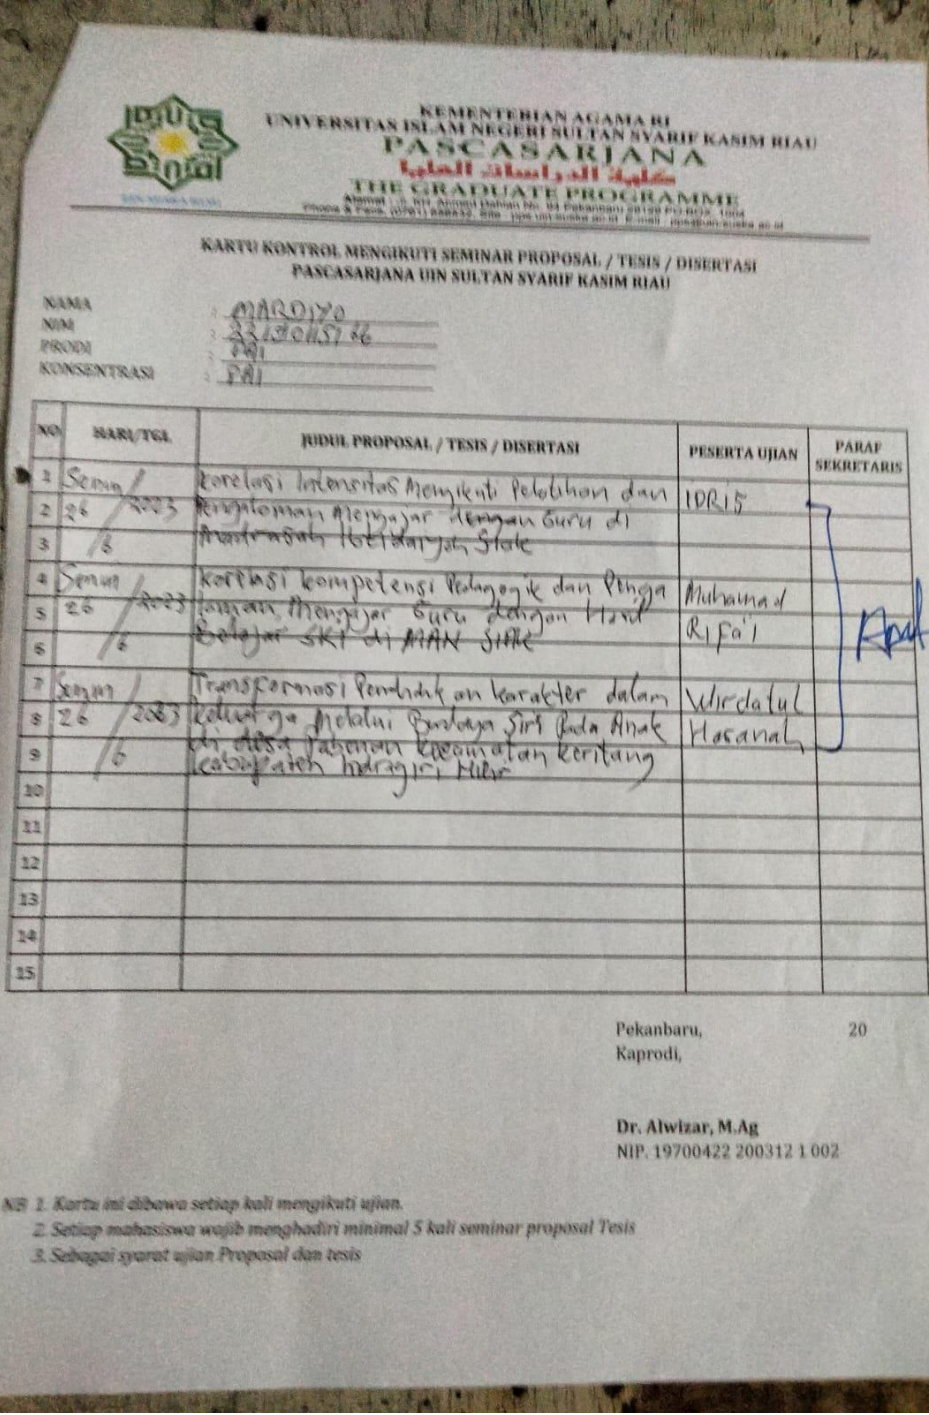 KEMENTERIAN AGAMA RI
UNIVERSITAS ISLAM NEGERI SULTAN SYARIF KASIM RIAU
PASCASARJANA
كلية الدراسات العليا
THE GRADUATE PROGRAMME
KARTU KONTROL MENGIKUTI SEMINAR PROPOSAL / TESIS / DISERTASI
PASCASARJANA UIN SULTAN SYARIF KASIM RIAU
NAMA : MARDIYO
NIM :
PRODI : PAI
KONSENTRASI : PAI
NO HARI/TGL JUDUL PROPOSAL / TESIS / DISERTASI PESERTA UJIAN PARAF SEKRETARIS
1 Senin / Korelasi Intensitas Mengikuti Pelatihan dan IDRIS
2 26 / 2023 Pengalaman Mengajar dengan Guru di
3 / 6 Madrasah Ibtidaiyah Siak
4 Senin Korelasi Kompetensi Pedagogik dan Penga Muhamad
5 26 / 2023 laman Mengajar Guru dengan Hasil Rifa'i
6 / 6 Belajar SKI di MAN SIAK
7 Senin Transformasi Pendidik an karakter dalam Wirdatul
8 26 / 2023 keluarga Melalui Budaya Siri Pada Anak Hasanah
9 / 6 di desa kecamatan keritang
kabupaten Indragiri Hilir
10
11
12
13
14
15
Pekanbaru, 20
Kaprodi,
Dr. Alwizar, M.Ag
NIP. 19700422 200312 1 002
NB 1. Kartu ini dibawa setiap kali mengikuti ujian.
2. Setiap mahasiswa wajib menghadiri minimal 5 kali seminar proposal Tesis
3. Sebagai syarat ujian Proposal dan tesis